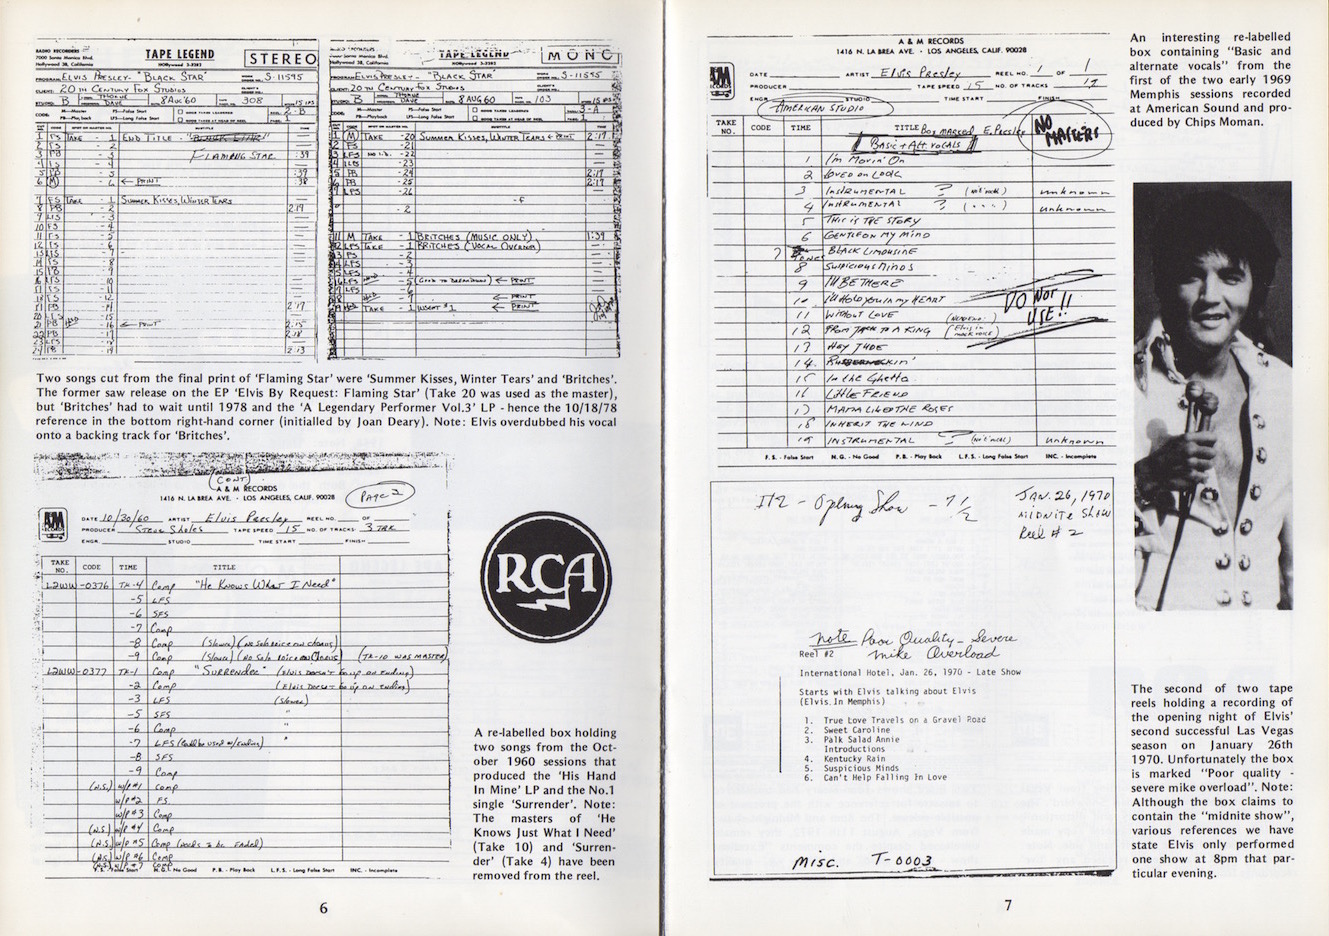 RADIO RECORDERS
7000 Santa Monica Blvd.
Hollywood 38, California
TAPE LEGEND
HOllywood 3-3282
STEREO
PROGRAM: ELVIS PRESLEY - "BLACK STAR"
S-11595
CLIENT: 20TH CENTURY FOX STUDIOS
STUDIO: B
THORNE
DAVE
8 AUG 60
308
15 IPS
1 FS TAKE - 1 END TITLE -
2 FS - 2
3 PB - 3 FLAMING STAR :39
4 FS - 4
5 PB - 5 :39
6 (M) - 6 ← PRINT :38
7 FS TAKE - 1 SUMMER KISSES, WINTER TEARS
8 PB - 2 2:19
9 LFS - 3
10 FS - 4
11 FS - 5
12 FS - 6
- 7
- 8
- 9
- 10
- 11
- 12
- 13
- 14 2:17
- 15
- 16 ← PRINT 2:15
- 17 2:18
- 18
- 19 2:13
TAPE LEGEND
HOllywood 3-3282
MONO
PROGRAM: ELVIS PRESLEY - "BLACK STAR"
S-11595
CLIENT: 20TH CENTURY FOX STUDIOS
STUDIO: B
THORNE
DAVE
8 AUG 60
103
15 IPS
3-A
1 (M) TAKE - 20 SUMMER KISSES, WINTER TEARS ← PRINT 2:19
2 FS - 21
3 LFS - 22
4 LFS - 23
5 PB - 24 2:17
6 PB - 25 2:17
7 LFS - 26
- F
- 2
11 M TAKE - 1 BRITCHES (MUSIC ONLY) 1:39
12 LFS TAKE - 1 BRITCHES (VOCAL OVERDUB)
- 2
- 3
- 4
- 5 (GOOD TO BREAKDOWN) ← PRINT
- 6
- 7 ← PRINT
TAKE - 1 INSERT #1 ← PRINT
Two songs cut from the final print of 'Flaming Star' were 'Summer Kisses, Winter Tears' and 'Britches'.
The former saw release on the EP 'Elvis By Request: Flaming Star' (Take 20 was used as the master),
but 'Britches' had to wait until 1978 and the 'A Legendary Performer Vol.3' LP - hence the 10/18/78
reference in the bottom right-hand corner (initialled by Joan Deary). Note: Elvis overdubbed his vocal
onto a backing track for 'Britches'.
(CONT)
A & M RECORDS
1416 N. LA BREA AVE. • LOS ANGELES, CALIF. 90028
PAGE 2
A&M RECORDS
DATE 10/30/60 ARTIST Elvis Presley REEL NO. OF
PRODUCER Steve Sholes TAPE SPEED 15 NO. OF TRACKS 3 TRK
ENGR. STUDIO TIME START FINISH
TAKE NO. CODE TIME TITLE
L2WW-0376 TK-4 Comp "He Knows What I Need"
-5 LFS
-6 SFS
-7 Comp
-8 Comp (Slower) (No Solo Voice on Chorus)
-9 Comp (Slower) (No Solo Voice on Chorus) (TK-10 WAS MASTER)
L2WW-0377 TK-1 Comp "Surrender" (Elvis Doesn't Go up on Ending)
-2 Comp (Elvis Doesn't Go up on Ending)
-3 LFS (Slower)
-5 SFS "
-6 Comp "
-7 LFS (Could be used w/Ending) "
-8 SFS
-9 Comp
(N.S.) W/P #1 Comp
W/P #2 FS.
W/P #3 Comp
(N.S.) W/P #4 Comp
(N.S.) W/P #5 Comp (Needs to be Faded)
(N.S.) W/P #6 Comp
(N.S.) W/P #7 Comp
F.S. - False Start N.G. - No Good P.B. - Play Back L.F.S. - Long False Start INC. - Incomplete
RCA
A re-labelled box holding
two songs from the Oct-
ober 1960 sessions that
produced the 'His Hand
In Mine' LP and the No.1
single 'Surrender'. Note:
The masters of 'He
Knows Just What I Need'
(Take 10) and 'Surren-
der' (Take 4) have been
removed from the reel.
6
A & M RECORDS
1416 N. LA BREA AVE. • LOS ANGELES, CALIF. 90028
A&M RECORDS
DATE ARTIST Elvis Presley REEL NO. 1 OF 1
PRODUCER TAPE SPEED 15 NO. OF TRACKS 12
ENGR. STUDIO TIME START FINISH
AMERICAN STUDIO
TAKE NO. CODE TIME TITLE Box marked E. Presley
Basic + Alt. vocals
NO MASTERS
1 I'm Movin' On
2 Loved on Look
3 INSTRUMENTAL ? unknown
4 INSTRUMENTAL ? unknown
5 THIS IS THE STORY
6 GENTLE ON MY MIND
7 BLACK LIMOUSINE
8 SUSPICIOUS MINDS
9 I'LL BE THERE
10 I'LL HOLD YOU IN MY HEART
11 WITHOUT LOVE
12 FROM JACK TO A KING (Elvis in mock voice)
DO NOT USE!!
13 HEY JUDE
14. RUBBERNECKIN'
15 In the Ghetto
16 LITTLE FRIEND
17 MAMA LIKED THE ROSES
18 INHERIT THE WIND
19 INSTRUMENTAL ? unknown
F.S. - False Start N.G. - No Good P.B. - Play Back L.F.S. - Long False Start INC. - Incomplete
An interesting re-labelled
box containing "Basic and
alternate vocals" from the
first of the two early 1969
Memphis sessions recorded
at American Sound and pro-
duced by Chips Moman.
IH2 - Opening Show - 7 1/2
JAN. 26, 1970
MIDNITE SHOW
Reel # 2
Note Poor Quality - Severe
Mike Overload
Reel #2
International Hotel, Jan. 26, 1970 - Late Show
Starts with Elvis talking about Elvis
(Elvis In Memphis)
1. True Love Travels on a Gravel Road
2. Sweet Caroline
3. Palk Salad Annie
Introductions
4. Kentucky Rain
5. Suspicious Minds
6. Can't Help Falling In Love
MISC. T-0003
The second of two tape
reels holding a recording of
the opening night of Elvis'
second successful Las Vegas
season on January 26th
1970. Unfortunately the box
is marked "Poor quality -
severe mike overload". Note:
Although the box claims to
contain the "midnite show",
various references we have
state Elvis only performed
one show at 8pm that par-
ticular evening.
7